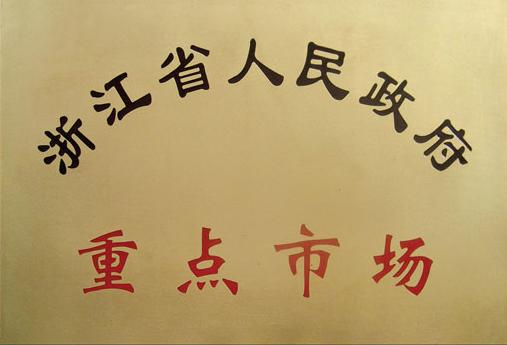 浙江省人民政府
重点市场